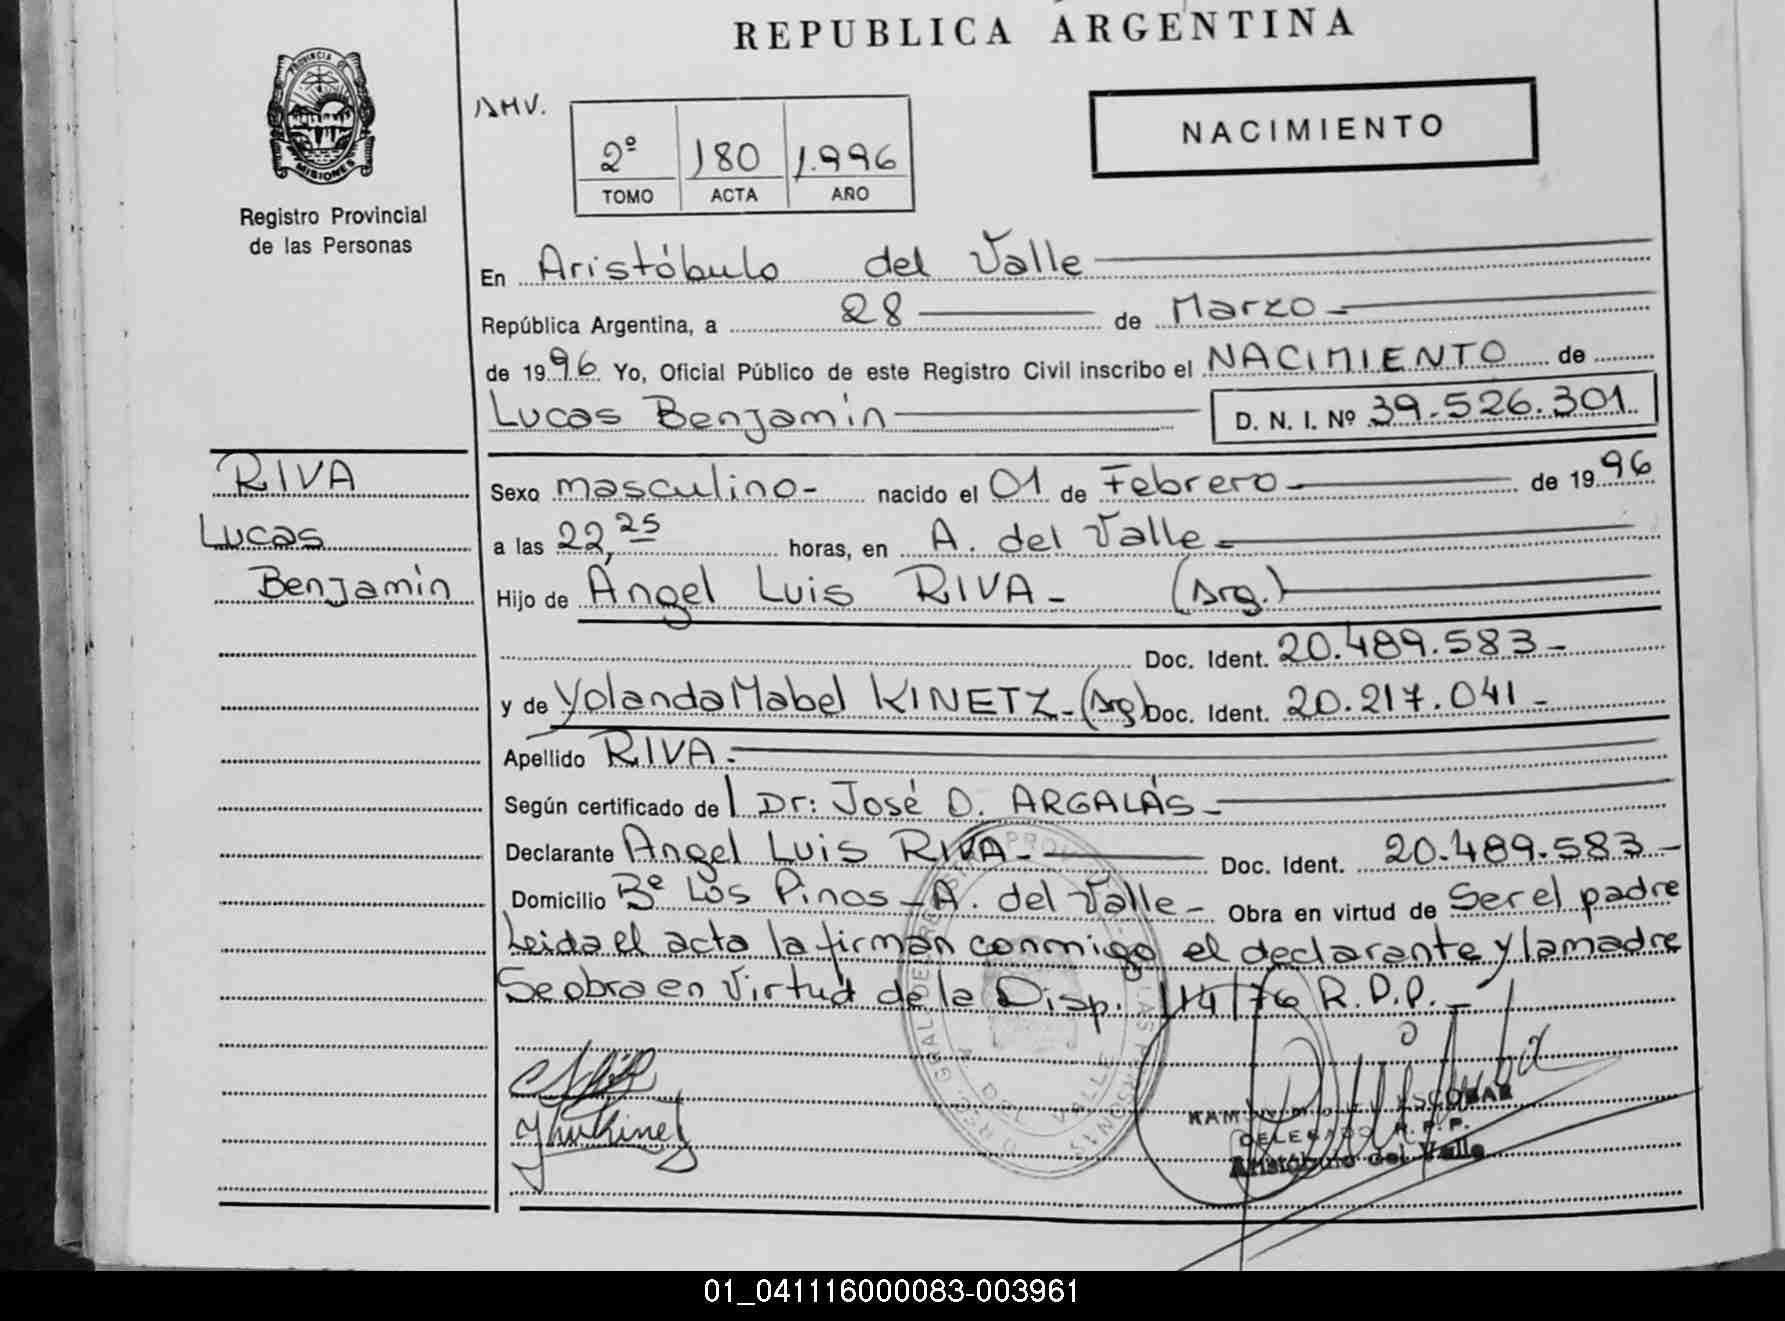 REPUBLICA ARGENTINA
PROVINCIA DE
MISIONES
Registro Provincial
de las Personas
AMV.
2º 180 1.996
TOMO ACTA AÑO
NACIMIENTO
En Aristóbulo del Valle
República Argentina, a 28 de Marzo
de 1996 Yo, Oficial Público de este Registro Civil inscribo el NACIMIENTO de
Lucas Benjamín D. N. I. Nº 39.526.301
RIVA
Lucas
Benjamín
Sexo masculino- nacido el 01 de Febrero de 1996
a las 22,25 horas, en A. del Valle
Hijo de Ángel Luis RIVA- (Arg.)
Doc. Ident. 20.489.583-
y de Yolanda Mabel KINETZ-(Arg) Doc. Ident. 20.217.041-
Apellido RIVA-
Según certificado de l Dr: José D. ARGALÁS-
Declarante Angel Luis RIVA- Doc. Ident. 20.489.583-
Domicilio Bº Los Pinos-A. del Valle- Obra en virtud de Ser el padre
Leida el acta la firman conmigo el declarante y la madre
Se obra en virtud de la Disp. 114/76 R.P.P.-
ESCOBAR
DELEGADO R.P.P.
Aristóbulo del Valle
A. DEL VALLE
01_041116000083-003961